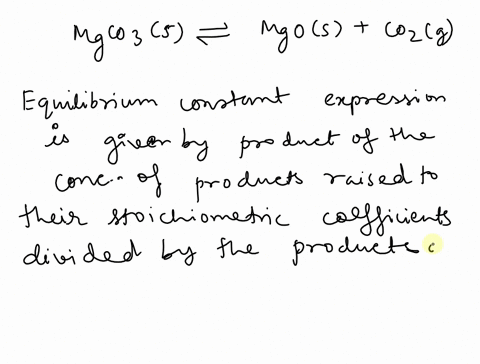 MgCO3 (s) ⇌ MgO(s) + CO2(g)
Equilibrium constant expression
is given by product of the
conc. of products raised to
their stoichiometric coefficients
divided by the products